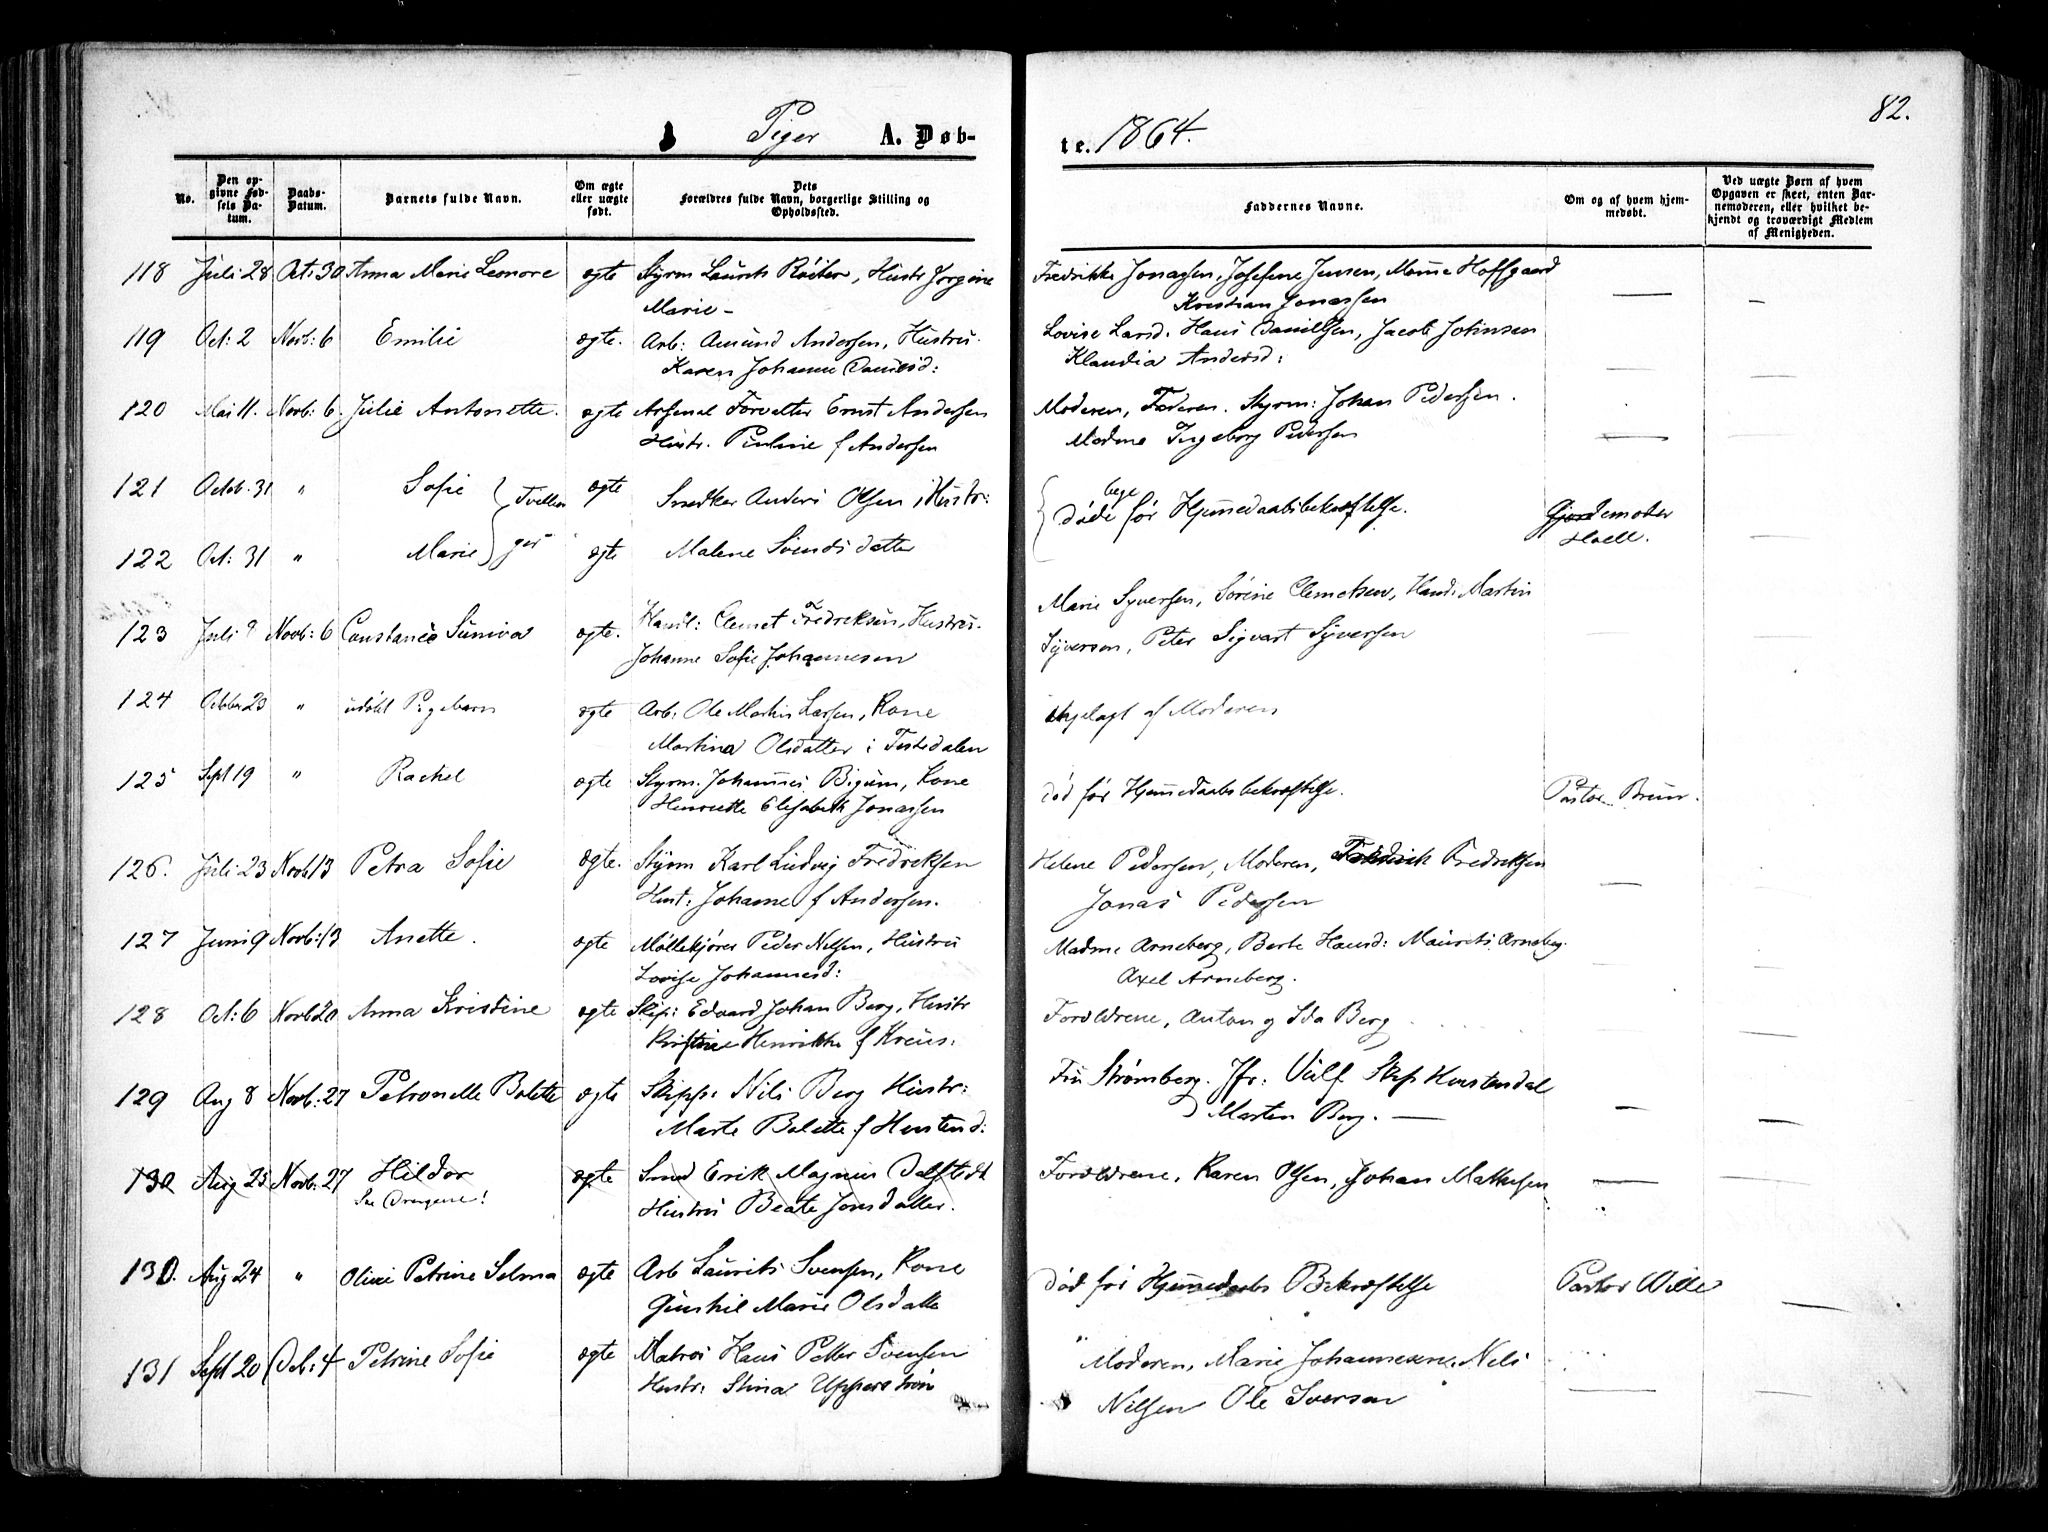 82.
Piger A. Døb-
te. 1864.
No.
Den op-
givne Fød-
sels Da-
tum.
Daabs-
Datum.
Barnets fulde Navn.
Om ægte
eller uægte
født.
Dets
Forældres fulde Navn, borgerlige Stilling og
Opholdssted.
Faddernes Navne.
Om og af hvem hjem-
medøbt.
Ved uægte Børn af hvem
Opgaven er skeet, enten Bar-
nemoderen, eller hvilket be-
kjendt og troværdigt Medlem
af Menigheden.
118 Juli 28 Oct: 30 Anna Marie Leonore ægte Styrm Laurits Hustr Jørgine Fredrikke Jonassen, Josefine Jensen, Hoffgaard
Marie – Kristian Jonassen
119 Oct: 2 Novb: 6 Emilie ægte. Arb: Amund Andersen, Hustru. Lovise Larsd. Hans Danielsen, Jacob Johnsen
Karen Johanne Danielsd: Klaudia Andersd:
120 Mai 11. Novb: 6. Julie Antonette. ægte Arsenal Forvalter Ernst Andersen Moderen, Faderen. Styrm: Johan Pedersen.
Hustr. Pauline f Andersen Madme Ingeborg Pedersen
121 Octob. 31 " Sofie Tvillin ægte Snedker Anders Olsen, Hustr: døde bege før Hjemmedaabsbekræftelse. Gjordemoder
122 Oct: 31 " Marie ger ægte Malene Svends datter Hoell.
123 Juli 9 Novb: 6 Constance Suniva ægte. Handl: Clemet Fredriksen, Hustru. Marie Syversen, Sørine Clemetsen, Hand: Martin
Johanne Sofie Johannesen Syversen, Peter Sigvart Syversen
124 October 23 " udøbt Pigebarn ægte Arb: Ole Martin Larsen, Kone ihjelagt af Moderen
Martina Olsdatter i Tistedalen
125 Sept 19 " Rachel ægte Styrm. Johannes Bigum, Kone død før Hjemmedaabsbekræftelse. Pastor Brun.
Henriette Elisabeth Jonassen
126. Juli 23 Novb 13 Petra Sofie ægte. Styrm Karl Ludvig Fredriksen Helene Pedersen, Moderen, Fredriksen
Hust: Johanne f Andersen. Jonas Pedersen
127 Juni 9 Novb: 13 Anette. ægte Møllekjører Peder Nelsen, Hustru Madme Arneberg, Berte Hansd: Maurits Arneberg.
Lovise Johannesd: Axel Arneberg.
128 Oct: 6 Novb 20 Anna Kristine ægte Skip: Edvard Johan Berg, Hustr Forældrene, Anton og Ida Berg
Kristine Henrikke f Kreüs:
129 Aug 8 Novb: 27 Petronelle Bolette ægte Skipp: Nils Berg Hustr: Fru Strømberg. Jfr: Vulf Skip
Marte Bolette f Morten Berg. —
130 Aug 25 Novb: 27 Hildor ægte Smed Erik Magnus Dalstedt Forældrene, Karen Olsen, Johan Mathesen
See Drengene! Hustru Beate Jonsdatter.
130. Aug 24 " Oline Petrine Selma ægte Arb Laurits Svensen, Kone død før Hjemmedaabs Bekræftelse Pastor Wille
Gunhil Marie Olsdatte
131 Sept 20 Deb: 4 Petrine Sofie ægte Matros Hans Petter Svensen Moderen, Marie Johannesen, Nels
Hustr: Stina Upperstrøm Nilsen Ole Iversen